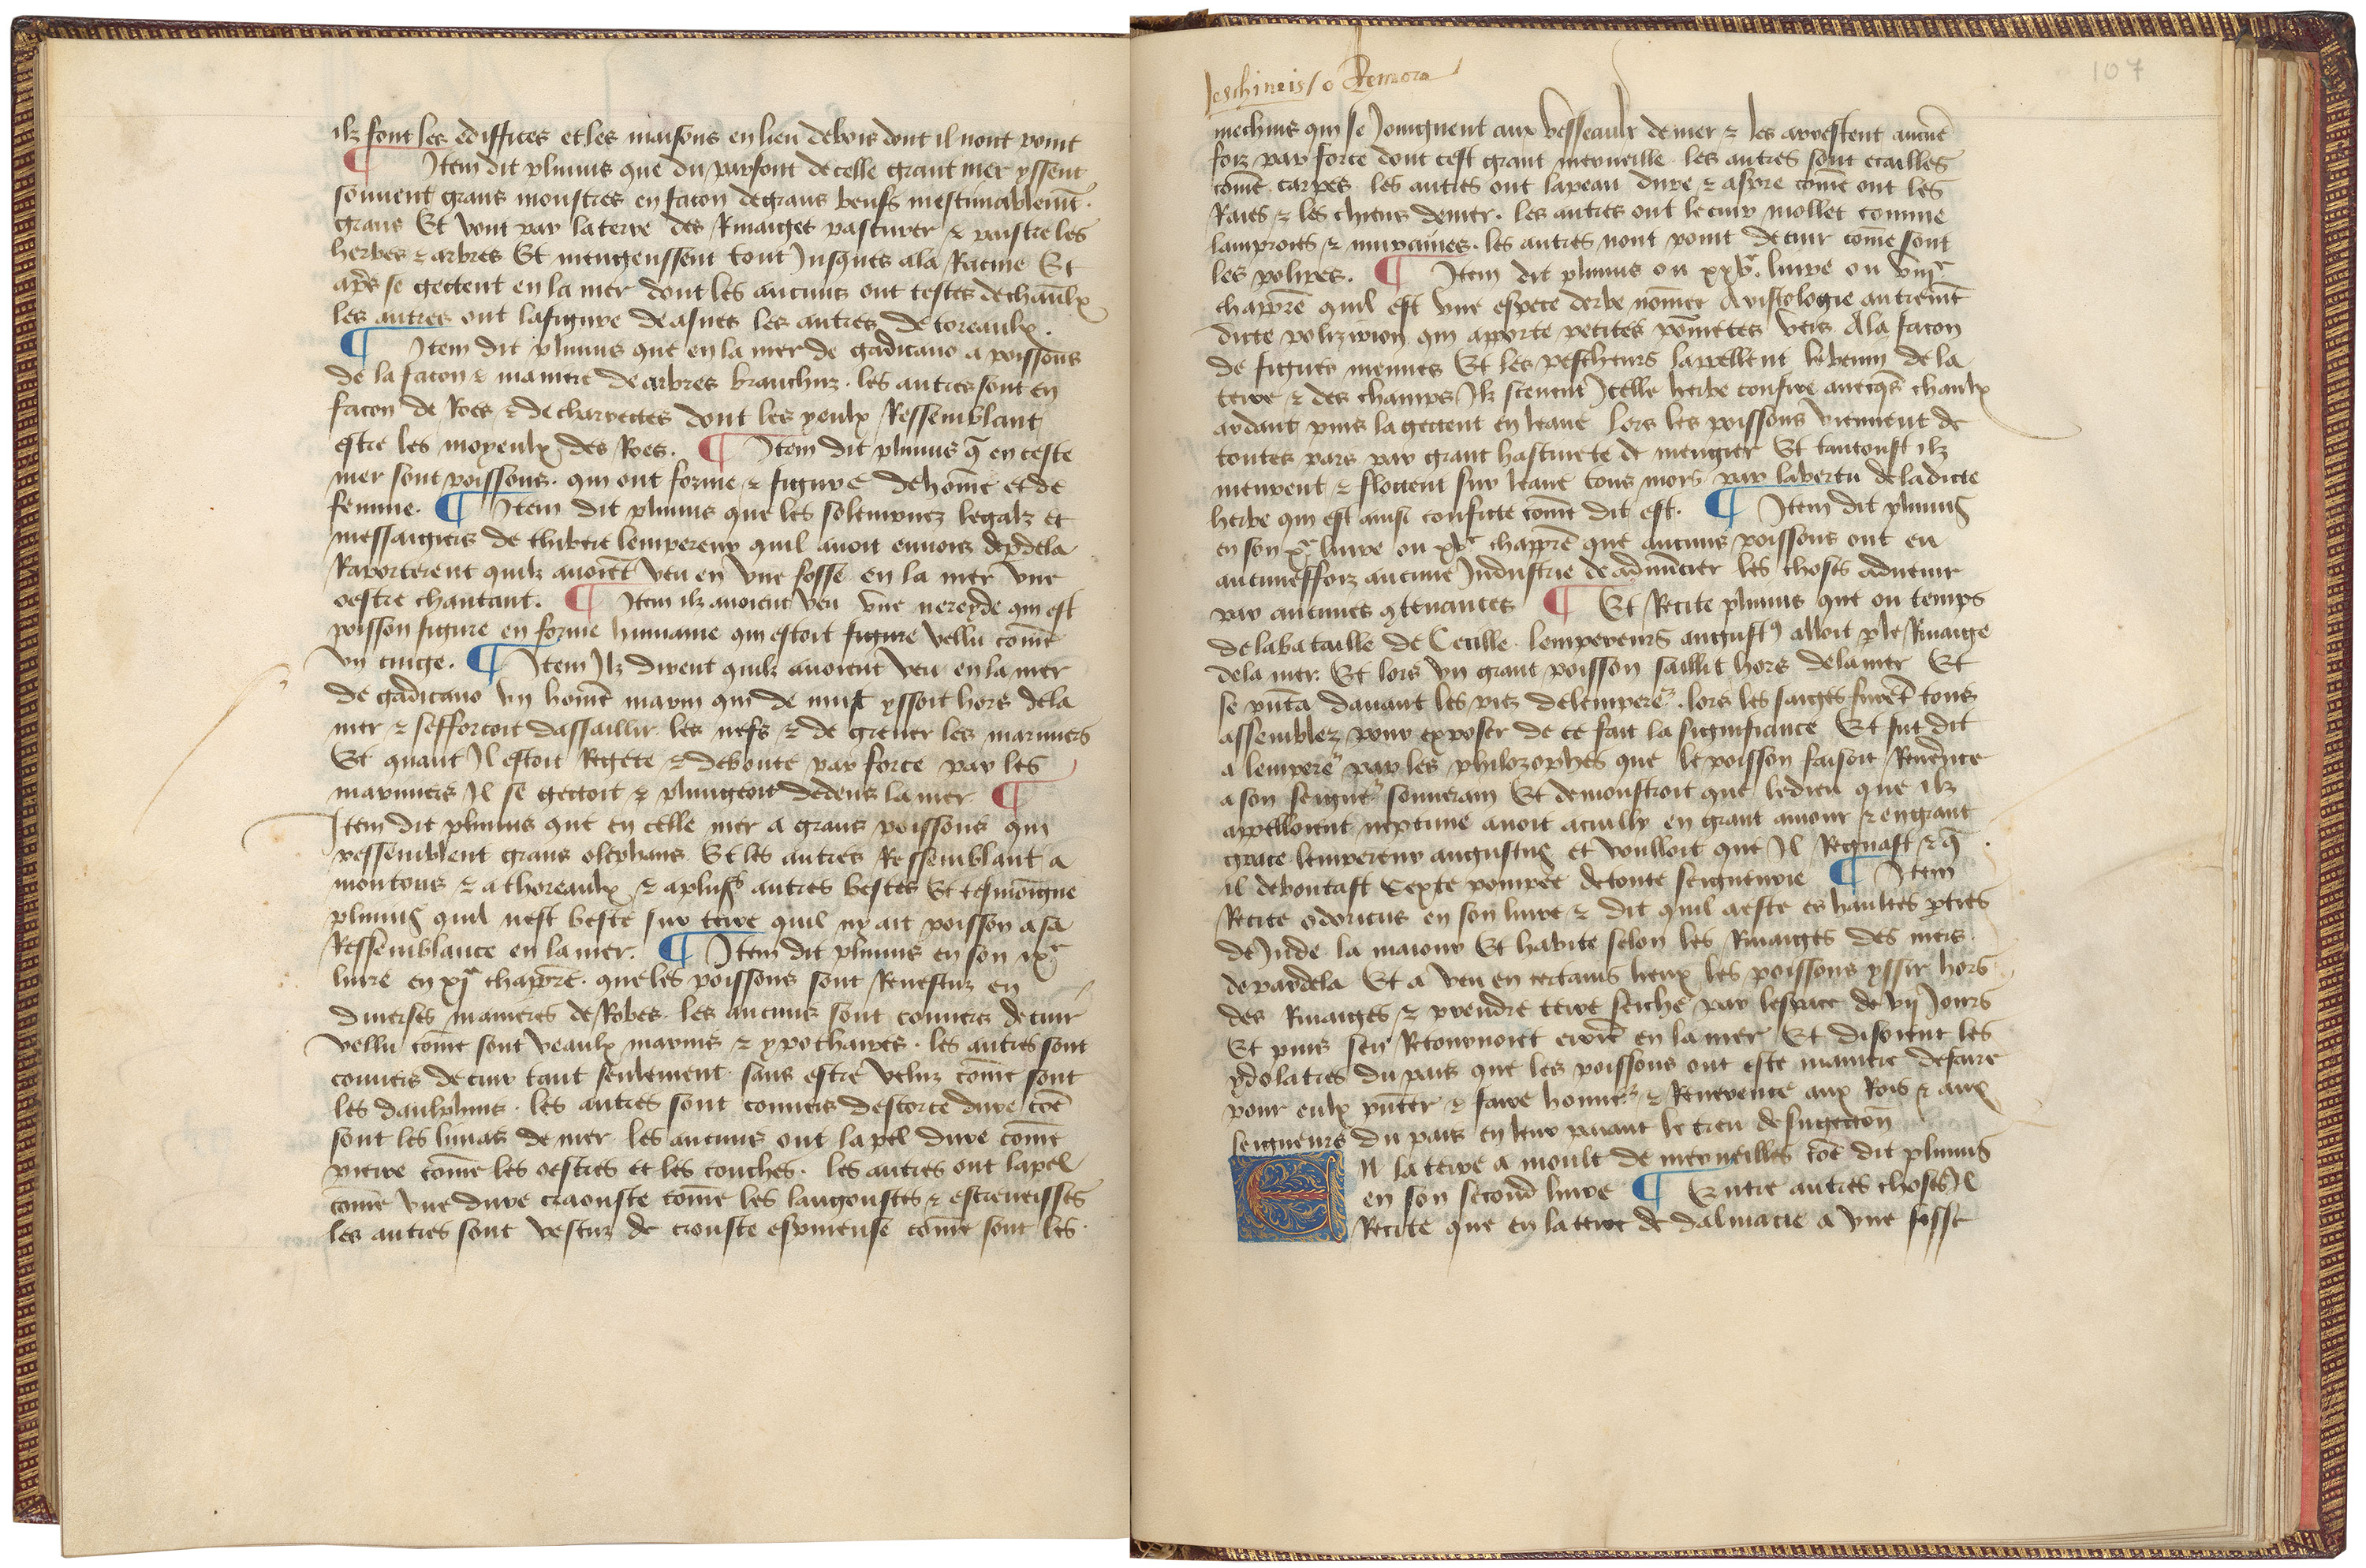 ilz font les ediffices et les maisons en lieu de bois dont il nont point
¶ Item dit plinius que du parfont de celle grant mer yssent
souuent grans monstres en facon de grans beufs inestimablemt̄
grans Et vont par la terre des Riuaiges pasturer ⁊ paistre les
herbes ⁊ arbres Et mengeussent tout Jusques a la Racine Et
aps̄ se gectent en la mer dont les aucuns ont testes de chaūlx
les autres ont la figure de asnes les autres de toreaulx.
¶ Item dit plinius que en la mer de gadicano a poissons
de la facon ⁊ maniere de arbres branchuz. les autres sont en
facon de Roes ⁊ de charrettes dont les yeulx Ressemblant
estre les moyeulx des Roes. ¶ Item dit plinius q̄ en ceste
mer sont poissons. qui ont forme ⁊ figure de hom̄e et de
femme. ¶ Item dit plinius que les solempnez legatz et
messaigiers de thibere lempereur quil auoit enuoiz depdela
Raporterent quilz auoiēt veu en vne fosse en la mer vne
oestre chantant. ¶ Item ilz auoient veu vne nereyde qui est
poisson figure en forme humaine qui estoit figure vellu com̄e
vn cinge. ¶ Item Ilz dirent quilz auoient veu en la mer
de gadicano vn hom̄e marin qui de nuit yssoit hors de la
mer ⁊ sefforcoit dassaillir les nefs ⁊ de greuer les mariniers
Et quant Il estoit Regete ⁊ deboute par force par les
mariniers Il se gectoit ⁊ plungeoit dedens la mer ¶
Item dit plinius que en celle mer a grans poissons qui
ressemblent grans olephans Et les autres Ressemblant a
moutons ⁊ a thoreaulx ⁊ a plusrs̄ autres bestes Et tesmoingne
plinius quil nest beste sur terre quil ny ait poisson a sa
Ressemblance en la mer. ¶ Item dit plinius en son ixe
liure en xje chapp̄re. que les poissons sont Reuestuz en
diuerses manieres de Robes. les aucuns sont couuers de cuir
vellu com̄e sont veaulx marins ⁊ ypothames. les autres sont
couuers de cuir tant seulement sans estre veluz com̄e sont
les daulphins. les autres sont couuers descorce dure cōe
sont les limas de mer les aucuns ont la pel dure com̄e
pierre com̄e les oestres et les conches. les autres ont la pel
com̄e vne dure craouste com̄e les langoustes ⁊ escreuisses
les autres sont vestuz de crouste espineuse com̄e sont les
Ieschineis / o Remora
107
mechins qui se Joingnent aux vesseaulx de mer ⁊ les arrestent aucūe
foiz par force dont cest grant merueille les autres sont ecailles
com̄e carpes les autres ont la peau dure ⁊ aspre com̄e ont les
Raies ⁊ les chiens de mer. les autres ont le cuir mollet comme
lamproies ⁊ muraines. les autres nont point de cuir com̄e sont
les polipes. ¶ Item dit plinius ou xxve. liure ou viije
chapp̄re quil est vne espece derbe nom̄ee Aristologie autremt̄
dicte polizirion qui apporte petites pōmetes vers A la facon
de figues menues Et les pescheurs lappellent le venin de la
terre ⁊ des champs Ilz sceuent Icelle herbe confire auecqs̄ chaulx
ardant puis la gectent en leaue Lors les poissons viennent de
toutes pars par grant hastiuete de mengier Et tantoust ilz
meurent ⁊ flottent sur leaue tous mors par la vertu de la dicte
herbe qui est ainsi conficte com̄e dit est. ¶ Item dit plinius
en son xe liure ou xve chapp̄re que aucuns poissons ont en
aucuneffoiz aucune Industrie de adnūcier les choses aduenir
par aucunes ꝯtenances ¶ Et Recite plinius que ou temps
de la bataille de Cecille lempereurs augustꝰ alloit p le Riuaige
de la mer Et lors vn grant poisson saillit hors de la mer Et
se pn̄ta dauant les piez de lempere᷑. lors les saiges furēt tous
assemblez pour exposer de ce fait la signifiance Et fut dit
a lempere᷑ par les philozophes que le poisson faisoit Reuerēce
a son seigne᷑ souuerain Et demonstroit que ledieu que ilz
appelloient neptune auoit acuilly en grant amour ⁊ en grant
grace lempereur augustus et voulloit que Il Regnast ⁊ q̄
il deboutast Cexte pompee de toute seigneurie ¶ Item
Recite odoricus en son liure ⁊ dit quil a este es haultes pties
de Inde la maiour Et habite selon les Riuaiges des mers
de pardela Et a veu en certains lieux les poissons yssir hors
des Riuaiges ⁊ prendre terre seiche par lespace de vij Jours
Et puis sen Retournoiēt en la mer Et disoient les
ydolatres du pais que les poissons ont este maniere de faire
pour eulx pn̄ter ⁊ faire honne᷑ ⁊ Reuerence aux Rois ⁊ aux
seigneurs du pais en leur paiant le treu de sugectiōn
EN la terre a moult de merueilles cōe dit plinius
en son second liure ¶ Entre autres choses Il
Recite que en la terre de dalmacie a vne fosse